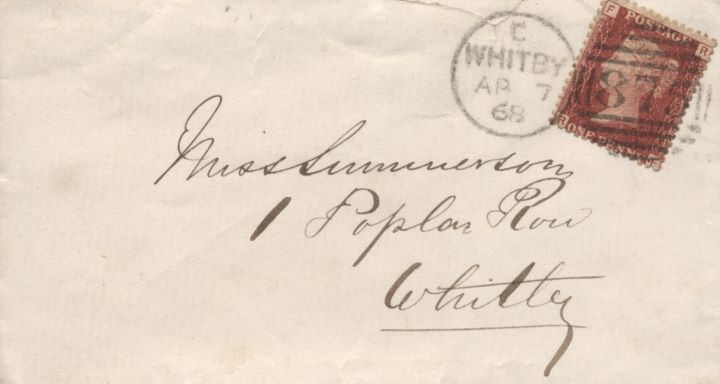 C
WHITBY
AP 7
68
F POSTAGE R
87
R ONE PENNY F
Miss Summerson
1 Poplar Row
Whitby